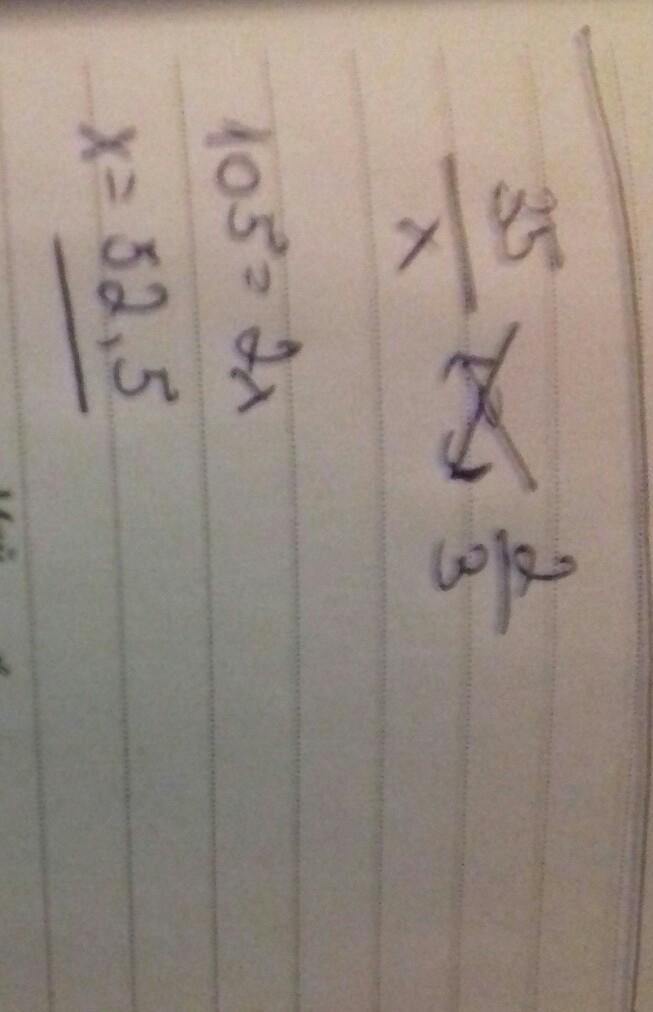 35/x 2/3
105 = 2x
x = 52,5